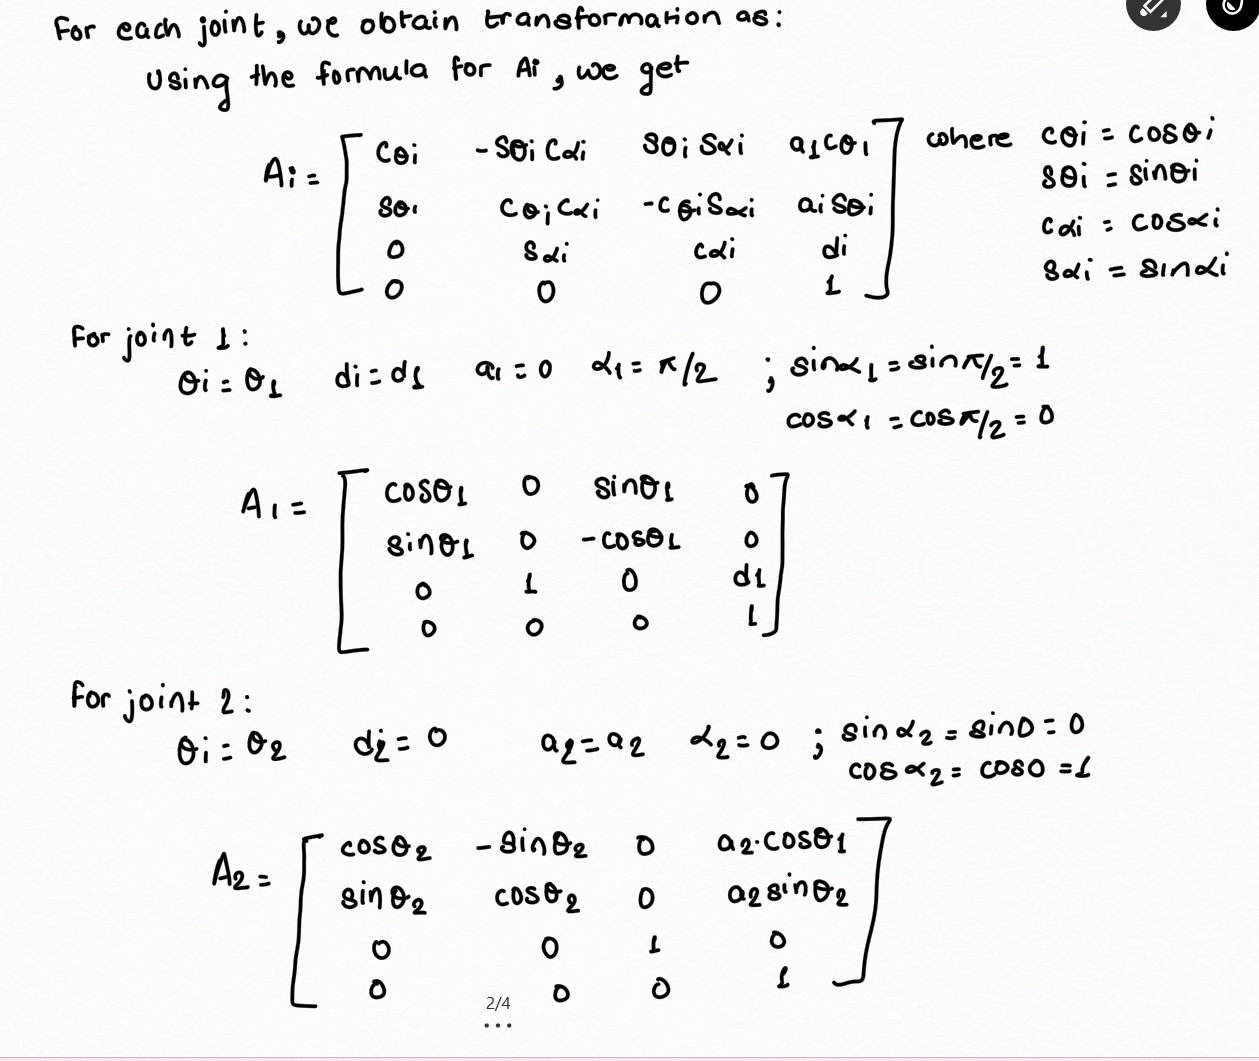 For each joint, we obtain transformation as:
Using the formula for Ai, we get
Ai = [ cθi -sθi cαi sθi sαi a1cθi ] where cθi = cosθi
sθi cθi cαi -cθi sαi ai sθi sθi = sinθi
0 sαi cαi di cαi = cosαi
0 0 0 1 sαi = sinαi
For joint 1:
θi = θ1 di = d1 a1 = 0 α1 = π/2 ; sinα1 = sinπ/2 = 1
cosα1 = cosπ/2 = 0
A1 = [ cosθ1 0 sinθ1 0 ]
sinθ1 0 -cosθ1 0
0 1 0 d1
0 0 0 1
For joint 2:
θi = θ2 d2 = 0 a2 = a2 α2 = 0 ; sinα2 = sin0 = 0
cosα2 = cos0 = 1
A2 = [ cosθ2 -sinθ2 0 a2·cosθ1 ]
sinθ2 cosθ2 0 a2 sinθ2
0 0 1 0
0 0 0 1
2/4